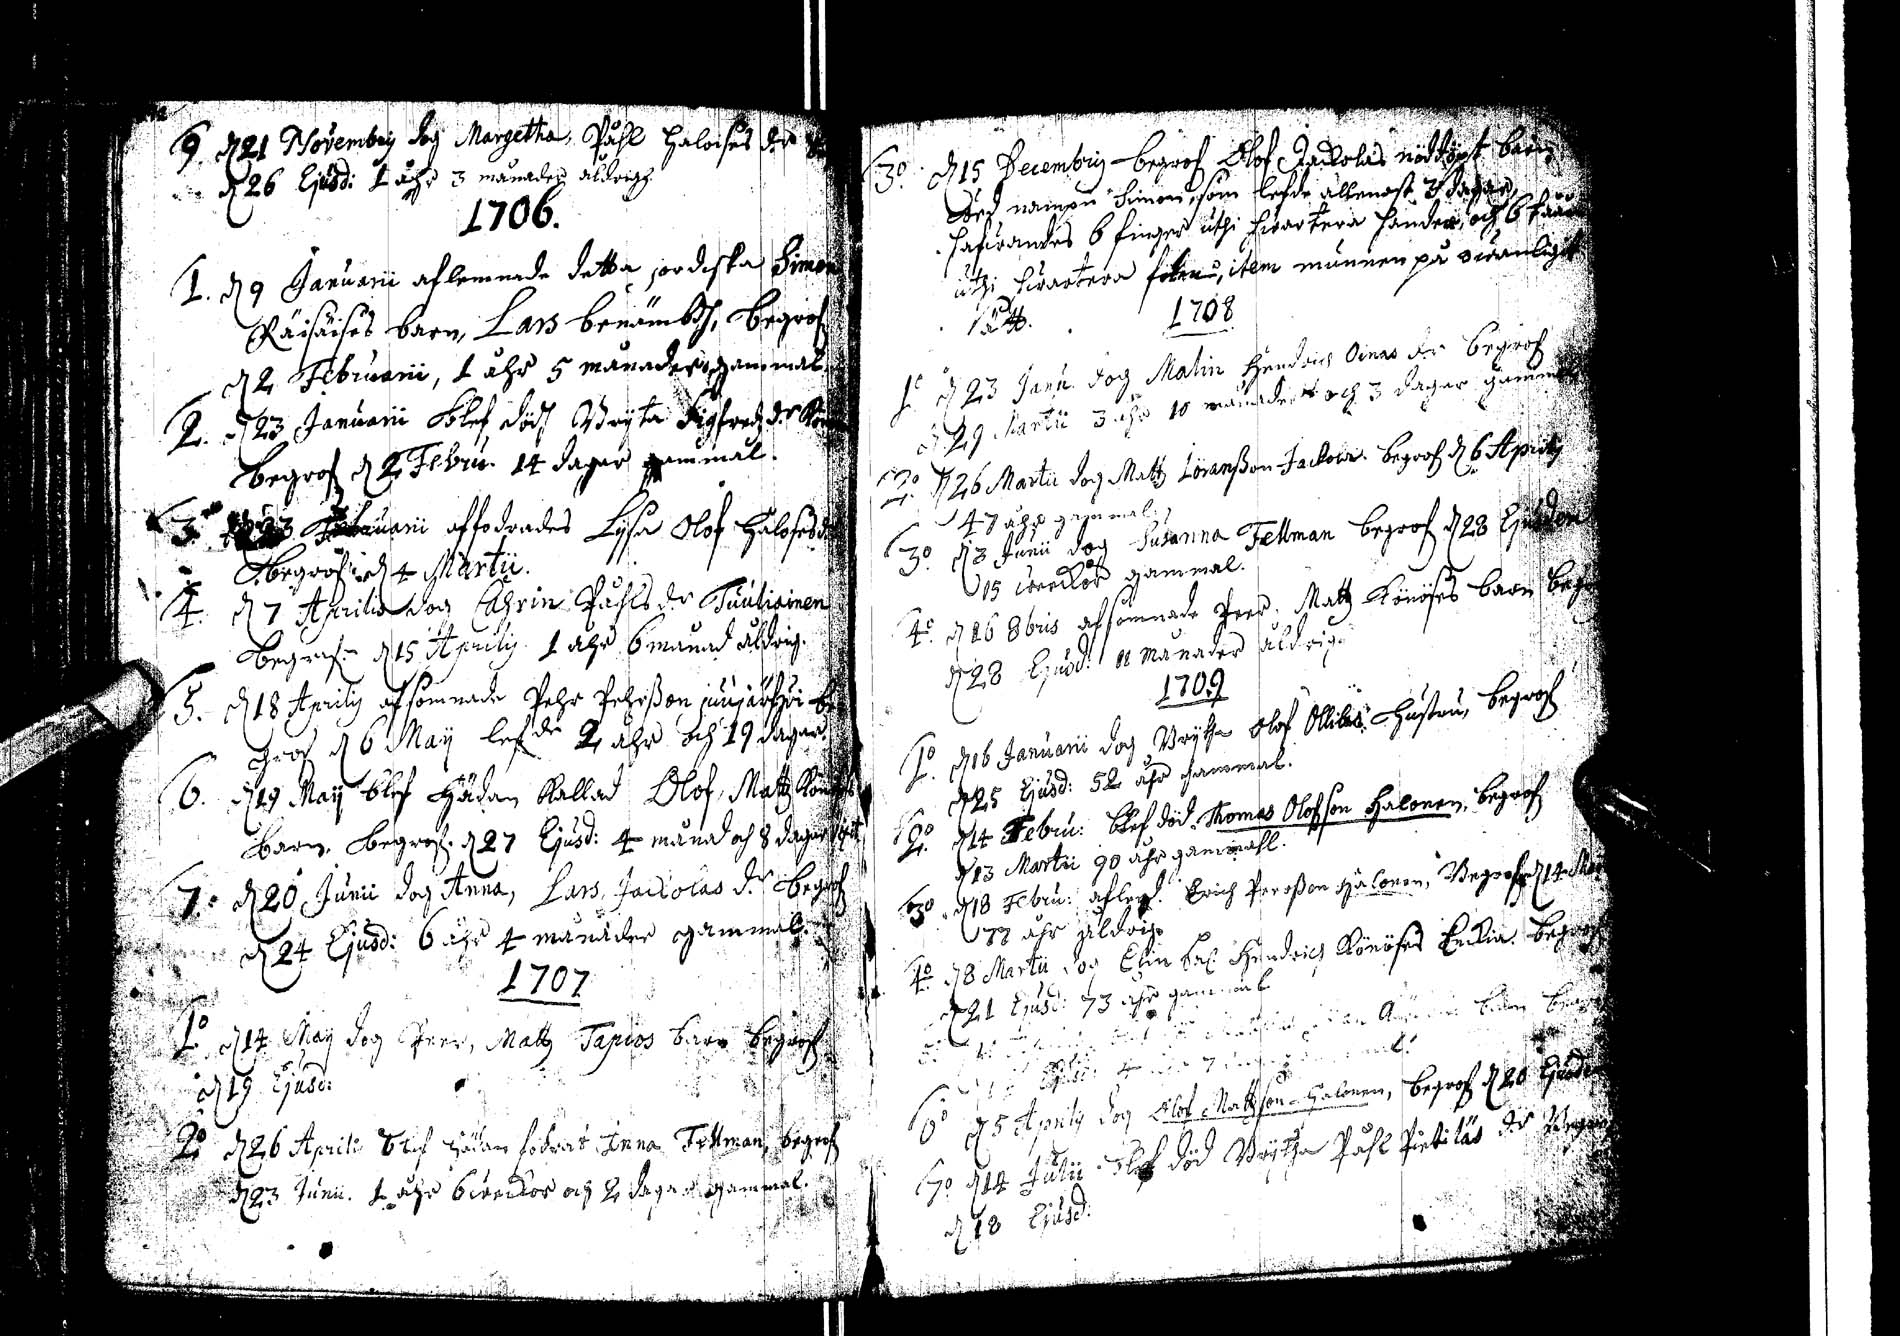 9. d 21 Novembris dog Margetha, Påhl Haloises dr
d 26 Ejusd: 1 åhr 3 månader åldrigh
1706.
1. d 9 Januarii aflemnade detta jordiska Simon
Räisäises barn, Lars benämbdh, begrofs
d 2 Februarii, 1 åhr 5 månader gammal.
2. d 23 Januarii blef dödh Bryta Sigfredz dr
begrofs d 2 Febru. 14 dagar gammal.
3. 23 Februarii affodrades Lysa Olof Haloises dr
begrofs d 4 Martii.
4. d 7 Aprilis dog Cahrin Påhls dr Tuuliainen
begrafn d 15 Aprilis 1 åhr 6 månad åldrig.
5. d 18 Aprilis afsomnade Pehr Pehrsson juujärfwi be-
grofs d 6 Maij lefde 2 åhr och 19 dagar.
6. d 19 Maij blef hädan kallad Olof, Matz
barn. begrofs. d 27 Ejusd: 4 månad och 8 dagar
7. d 20 Junii dog Anna, Lars Jackolas dr begrofs
d 24 Ejusd: 6 åhr 4 månader gammal.
1707
1o d 14 Maij dog Peer, Matz Tapios barn begrofs
d 19 Ejusd:
2o d 26 Aprilis blef hädan fodrat Anna Fellman, begrofs
d 23 Junii. 1 åhr 6 weckor och 2 dagar gammal.
3o. d 15 Decembris begrofs Olof Jackolas nöddöpt barn
wed nampn Simon, som lefde allenast dagar,
hafwandes 6 finger uthi hwartera handen, och 6 tåår
uthi hwartera foten, item munnen på owanligit
sätt.
1708
1o d 23 Janu. dog Malin Hendrich Oinas dr begrofs
d 29 Martii 3 åhr 10 månader och 3 dagar gammal
2o. d 26 Martii dog Matz Löransson Jackola. begrofs d 6 Aprilis
47 åhr gammal.
3o. d 3 Junii dog Susanna Fellman begrofs d 28 Ejusdem
15 weckor gammal.
4o. d 16 8bris afsomnade Peer. Matz Könöses barn begr
d 28 Ejusd: 11 månader åldrig.
1709
1o. d 16 Januarii dog Brytha Olof Ollikas hustru, begrofs
d 25 Ejusd: 52 åhr gammal.
2o. d 14 Febru: blef död. Thomas Olofson Halonen, begrofs
d 13 Martii 90 åhr gammahl.
3o d 18 Febru: afled. Erich Persson Halonen, Begrofs d 14 Mar
77 åhr åldrig.
4o. d 8 Martii dog Elin Hendrich Könöses Enckia. begrofs
d 21 Ejusd: 73 åhr gammal
barn begro
Ejusd: 4
6o d 5 Aprilis dog Olof Mattzson Halonen, begrofs d 20 Ejusde
7o d 14 Julii blef död Brytha Påhl Pietiläs dr Begro
d 18 Ejusd: